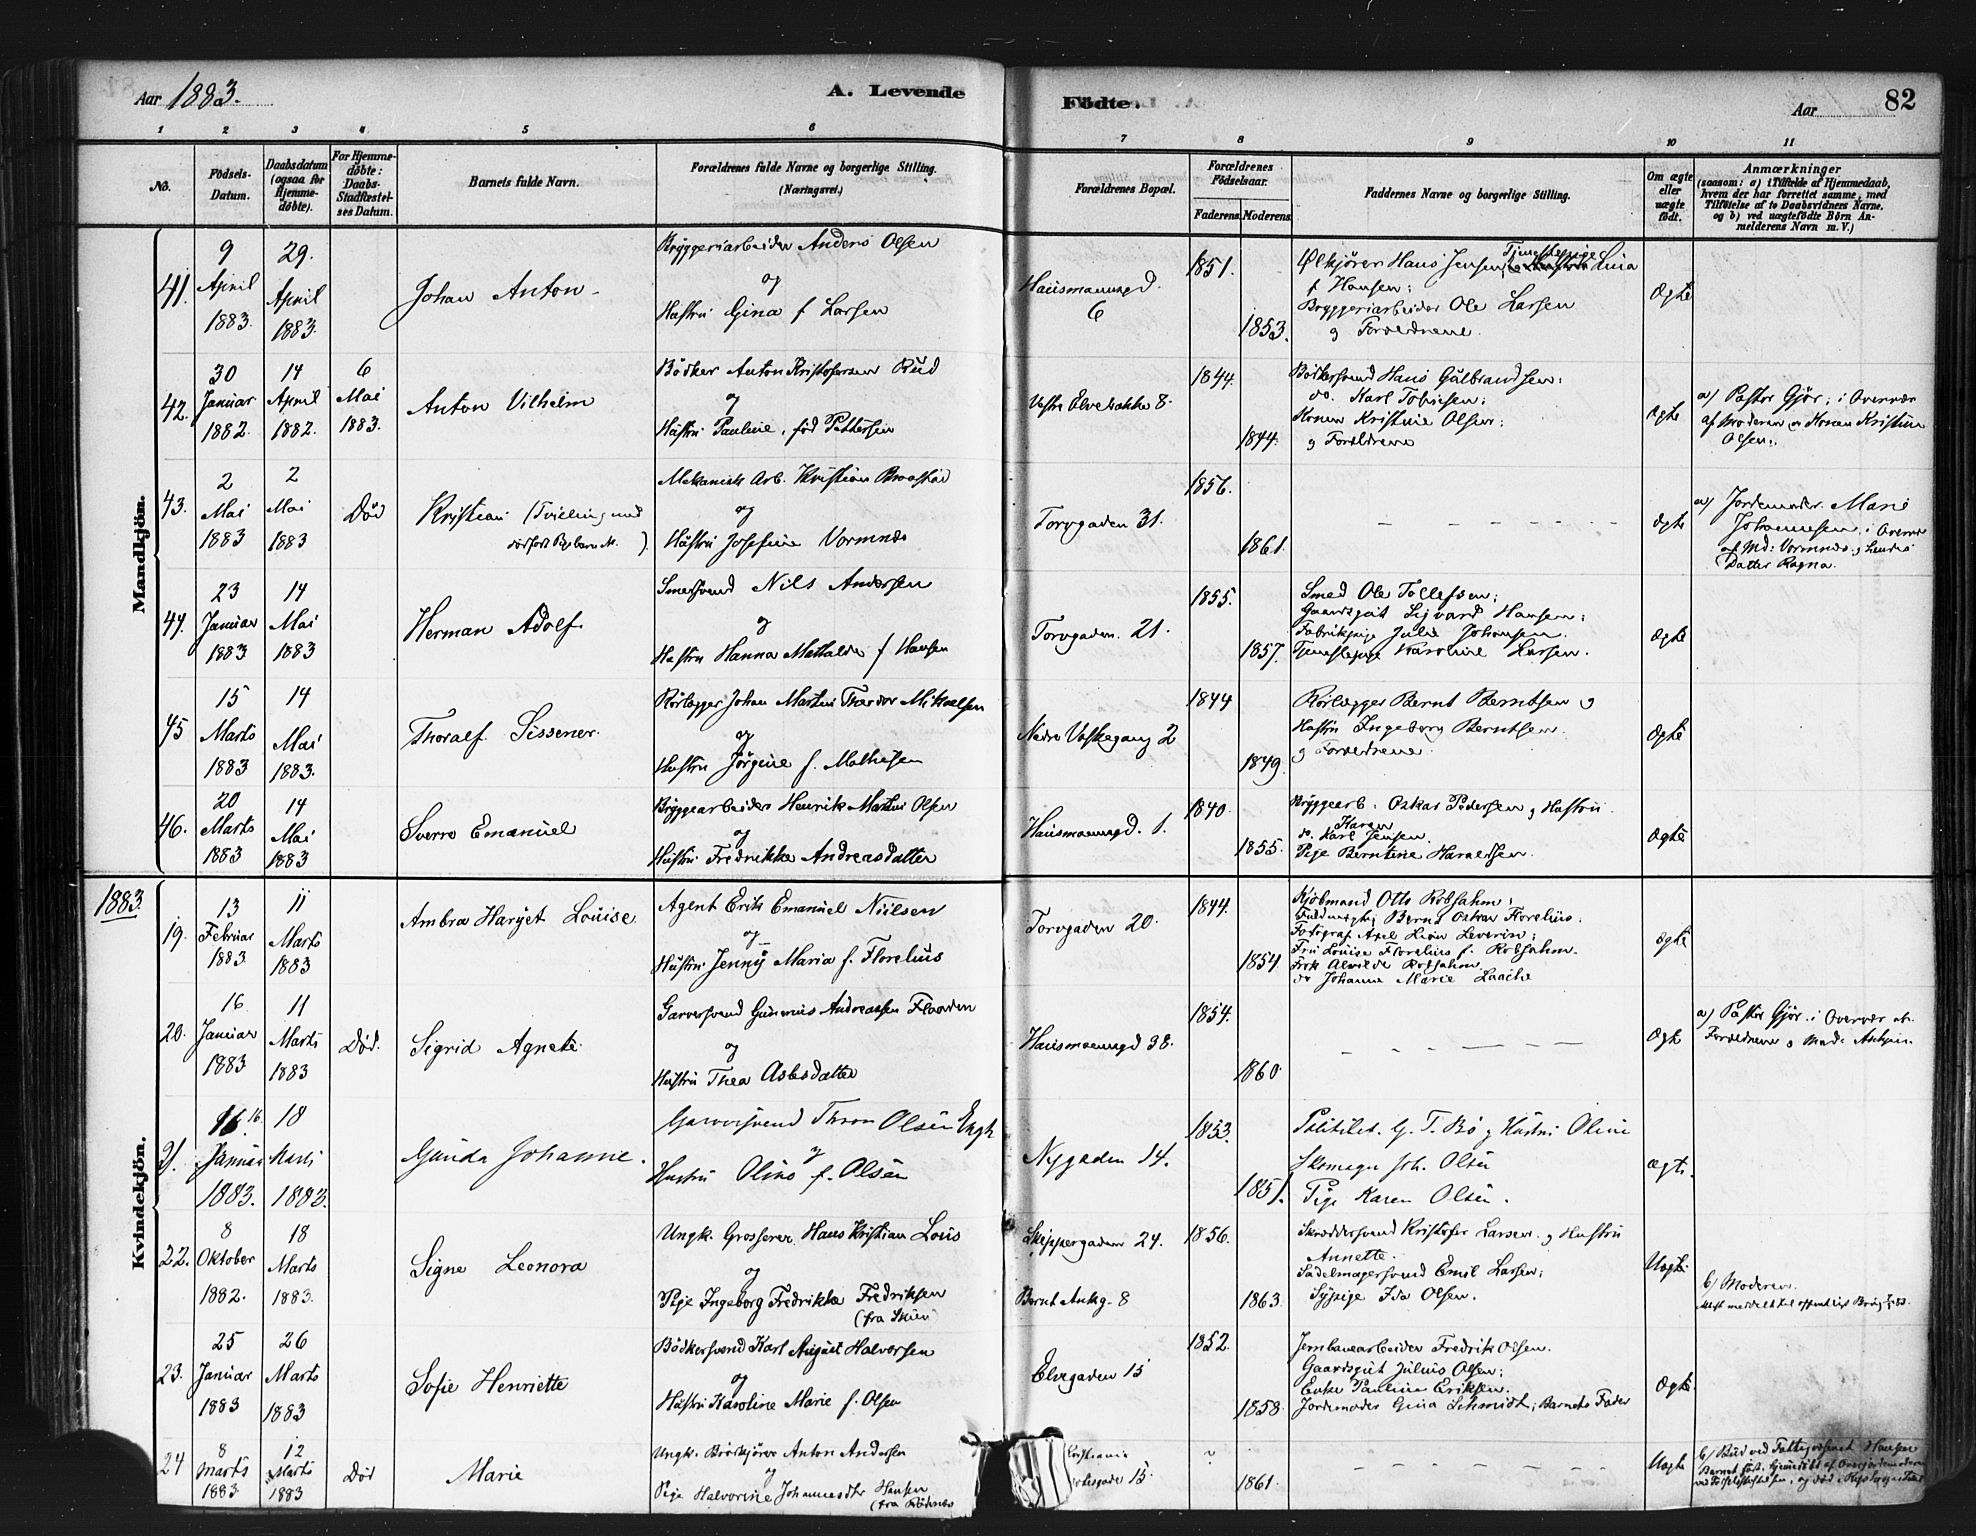 Aar 1883.
A. Levende
Födte.
Aar
82
1 2 3 4 5 6 7 8 9 10 11
No.
Födsels-Datum.
Daabsdatum (ogsaa for Hjemme-döbte).
For Hjemme-döbte: Daabs-Stadfæstel-ses Datum.
Barnets fulde Navn.
Forældrenes fulde Navne og borgerlige Stilling. (Næringsvei.)
Forældrenes Bopæl.
Forældrenes Födselsaar.
Faderens. Moderens.
Faddernes Navne og borgerlige Stilling.
Om ægte eller uægte födt.
Anmærkninger
(saasom: a) i Tilfælde af Hjemmedaab, hvem der har forrettet samme, med Tilföielse af to Daabsvidners Navne. og b) ved uægtefödte Börn An-melderens Navn m. V.)
Mandkjön.
41. 9 April 1883. 29. April 1883.
Johan Anton
Bryggeriarbeider Anders Olsen
og
Hustru Gina f Larsen
Hausmannsgd. 6
1851. 1853.
Ølkjører Hans Jensen, Tjenestepige Lina
f Hansen;
Bryggeriarbeider Ole Larsen
og Forældrene.
Ægte
42. 30 Januar 1882. 14 April 1882. 6 Mai 1883.
Anton Vilhelm
Bödker Anton Kristofersen Rud
og
Hustru Pauline, föd Pettersen
Vestre Elvebakke 8.
1844. 1844.
Bödkersvend Hans Gulbrandsen;
do. Karl Tobiesen;
Konen Kristine Olsen;
og Forældrene
Ægte
a) Pastor Gjör; i Overvær
af Moderen og Konen Kristine
Olsen.
43. 2 Mai 1883 2 Mai 1883 Död
Kristian (Tvilling med
dödfödt Pigebarn)
Mekanisk Arb. Kristian
og
Hustru Josefine Vormnes
Torvgaden 31.
1856. 1861.
Ægte
a) Jordemoder Marie
Johannesen i Overvær
af Md: Vormnes og
Datter Ragna.
44. 23 Januar 1883 14 Mai 1883
Herman Adolf.
Smedsvend Nils Andersen
og
Hustru Hanna Mathilde f Hansen
Torvgaden. 21.
1855. 1857.
Smed Ole Tollefsen;
Gaardsgut Sigvard Hansen;
Fabrikpige Julie Johansen.
Tjenestepige Karoline Larsen.
Ægte
45 15 Marts 1883 14 Mai 1883.
Thoralf Sissener.
Rörlægger Johan Martin Theodor Mikaelsen
og
Hustru Jørgine f. Mathisen
Nedre Voskegang 2
1844 1849.
Rörlægger Bernt Berntsen og
Hustru Ingeborg Berntsen
og Forældrene.
Ægte
46. 20 Marts 1883 14 Mai 1883
Sverre Emanuel
Bryggearbeider Henrik Martin Olsen
og
Hustru Fredrikke Andreasdatter
Hausmannsgd. 1.
1840. 1855.
Bryggearb. Oskar Pedersen og Hustru
Karen
do. Karl Jensen.
Pige Berntine Haraldsen.
Ægte
Kvindekjön.
1883.
19. 13 Februar 1883. 11 Marts 1883
Ambra Haryet Louise
Agent Erik Emanuel Nielsen
og
Hustru Jenny Maria f. Florelius
Torvgaden 20.
1844. 1854
Kjöbmand Otto Robsahm;
Fuldmægtig Bernt Oskar Florelius.
Fotograf Axel Leverin;
Fru Louise Florelius f. Robsahm.
Frök Alvilde Robsahm
do Johanne Marie Laache
Ægte
20. 16 Januar 1883 11 Marts 1883 Död.
Sigrid Agnete
Garversvend Gunerius Andreassen Flaaden
og
Hustru Thea Asbesdatter
Hausmannsgd 38.
1854. 1860.
Ægte
a) Pastor Gjör. i Overvær af
Forældrene og Mad.
21. 16 Januar 1883. 18 Marts 1883.
Gunda Johanne.
Garversvend Thron Olsen Engh
og
Hustru Oline f. Olsen
Nygaden 14.
1853. 1851.
Politibet. G. T. Bö og Hustru Oline
Skomager Joh. Olsen
Pige Karen Olsen.
Ægte
22. 8 Oktober 1882. 18 Marts 1883.
Signe Leonora
Ungk. Grosserer Hans Kristian Lous
og
Pige Ingeborg Fredrikke Fredriksen
(fra Skien)
Skippergaden 24.
Bernt Ankg. 8
1856. 1863.
Skræddersvend Kristofer Larsen og Hustru
Annette.
Sadelmagersvend Emil Larsen;
Sypige Ida Olsen.
Uægte.
b) Moderen.
23. 25 Januar 1883 26 Marts 1883
Sofie Henriette
Bödkersvend Karl August Halvorsen
og
Hustru Karoline Marie f. Olsen
Elvegaden 15
1852. 1858.
Jernbanearbeider Fredrik Olsen.
Gaardsgut Julius Olsen;
Enke Pauline Eriksen.
Jordemoder Gina Schmidt; Barnets Fader
Ægte.
24 8 Marts 1883 12 Marts 1883 Död
Marie
Ungk. Anton Andersen
og
Pige Halvorine Johannesdtr Hansen
(fra Rödenes)
Kristiania
15.
1861.
Uægte
b) Bud ved Fattigvæsenet Hansen